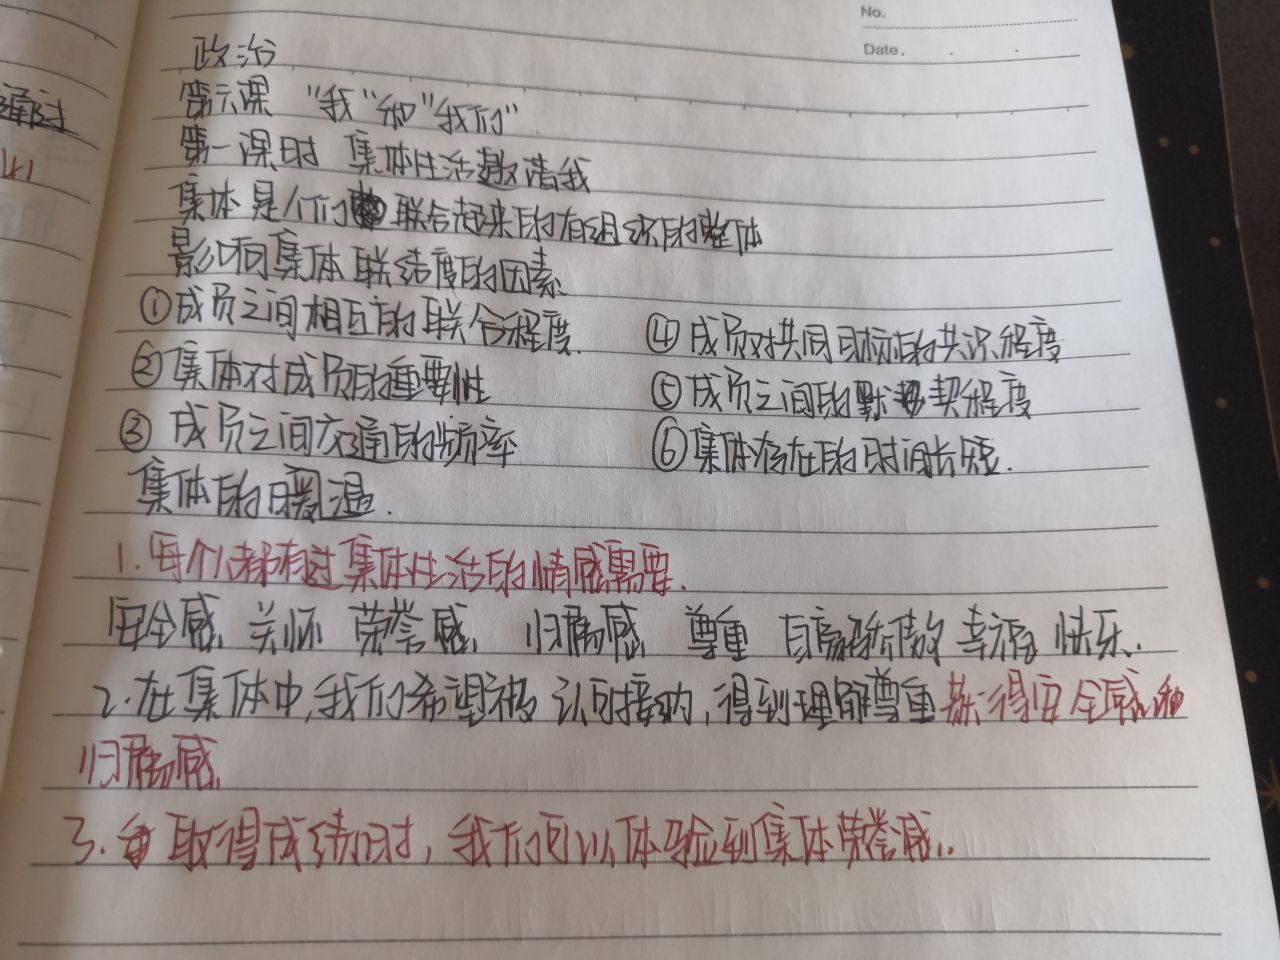 No.
Date.
政治
第六课 "我"和"我们"
第一课时 集体生活邀请我
集体是人们联合起来的有组织的整体
影响集体联结度的因素
①成员之间相互的联合程度. ④成员对共同目标的共识程度
②集体对成员的重要性 ⑤成员之间的默契程度
③成员之间交通的频率 ⑥集体存在的时间长短.
集体的温暖.
1.每个人都有过集体生活的情感需要.
安全感 关怀 荣誉感 归属感 尊重 自豪骄傲 幸福 快乐.
2.在集体中,我们希望被认同接纳,得到理解尊重获得安全感和
归属感
3.取得成绩时,我们可以体验到集体荣誉感.
通过